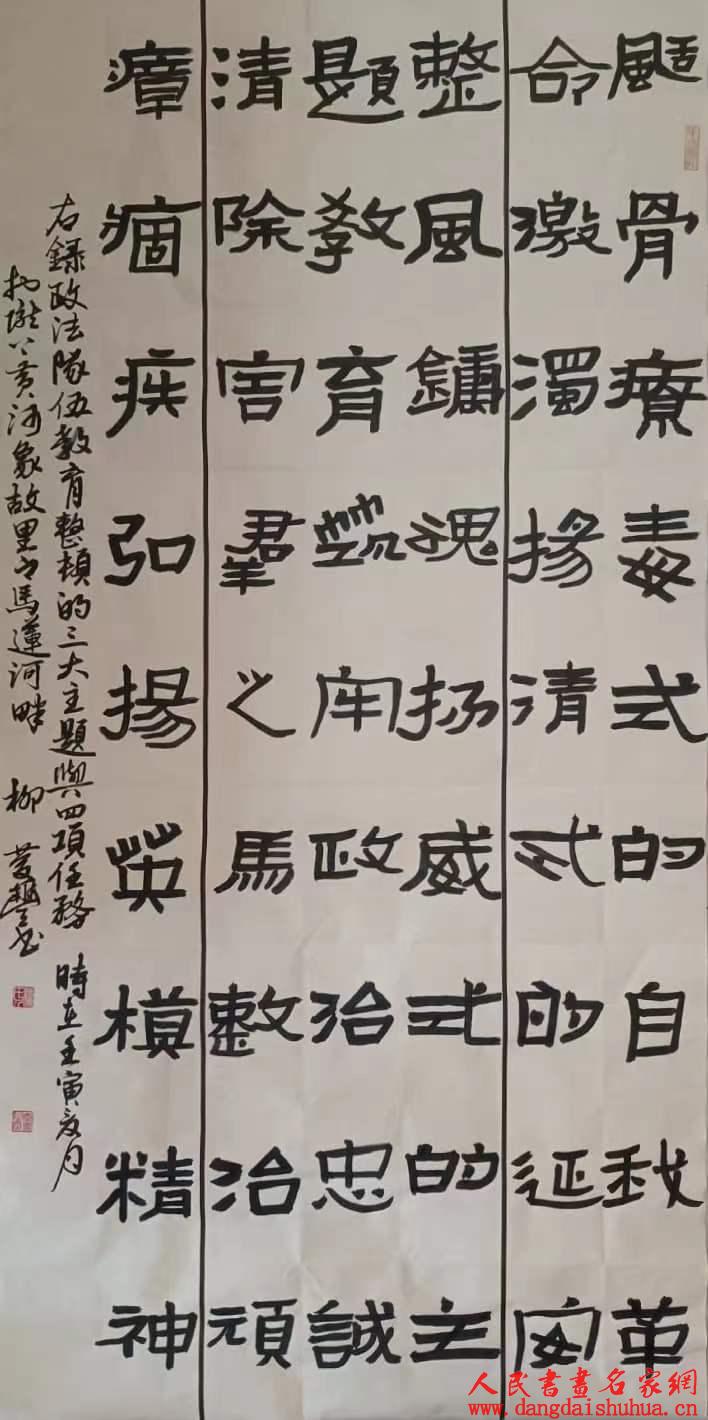 颳骨療毒式的自我革
命激濁揚清式的延安
整風鑄魂扬威式的主
題教育筑牢政治忠誠
清除害羣之馬整治頑
瘴痼疾弘揚英模精神
右錄政法隊伍教育整頓的三大主題與四項任務 時在壬寅夏月
於隴上黄河象故里之馬蓮河畔 柳 書
人民書畫名家網
www.dangdaishuhua.cn